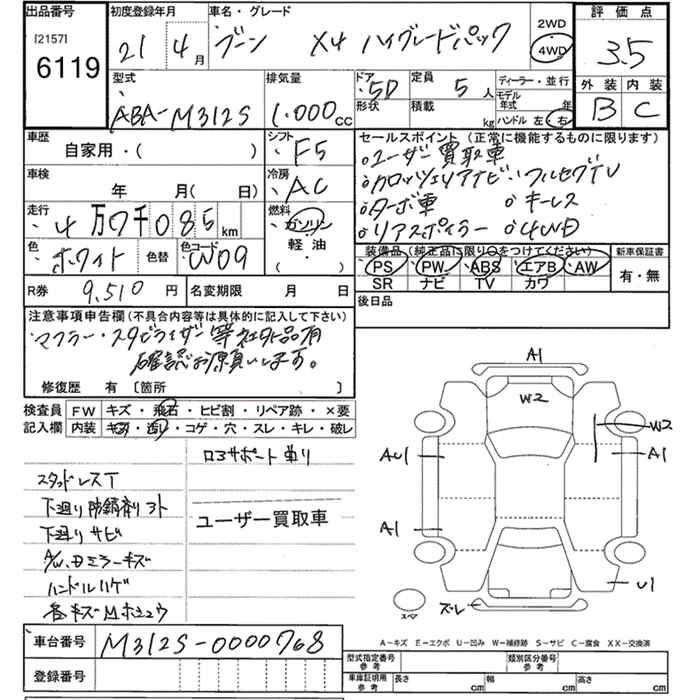 出品番号
[2157]
6119
初度登録年月
21 4月
車名・グレード
ブーン X4 ハイグレードパック
2WD
4WD
評価点
3.5
外装 内装
B C
型式
ABA-M312S
排気量
1.000cc
ドア
5D
形状
定員
5人
積載
kg
ディーラー・並行
モデル年式 年
ハンドル 左・右
車歴
自家用・( )
シフト
F5
セールスポイント (正常に機能するものに限ります)
ユーザー買取車
カロッツェリアナビ・フルセグTV
ターボ車 キーレス
リアスポイラー 4WD
車検
年 月(日)
冷房
AC
走行
4万7千085km
燃料
ガソリン
軽油
( )
色
ホワイト
色替
色コード
W09
装備品 (純正品に限り○をつけてください)
PS PW ABS エアB AW
SR ナビ TV カワ
新車保証書
有・無
R券
9,510円
名変期限 月 日
後日品
注意事項申告欄(不具合内容等は具体的に記入して下さい)
マフラー・スタビライザー等社外品有
確認お願いします。
修復歴 有 〔箇所 〕
検査員記入欄
FW キズ・飛石・ヒビ割・リペア跡・×要
内装 キズ・汚レ・コゲ・穴・スレ・キレ・破レ
ロアサポート曲り
スタッドレスT
下廻り防錆剤ヌト
下廻りサビ
ユーザー買取車
A/W、Dミラーキズ
ハンドルハゲ
各キズMホシュウ
A1
W2
W2
AU1
A1
A1
U1
ズレ
スペア
A-キズ E-エクボ U-凹み W-補修跡 S-サビ C-腐食 XX-交換済
車台番号
M312S-0000768
登録番号
型式指定番号
参考
類別区分番号
参考
車庫証明用
参考
長さ cm
幅 cm
高さ cm